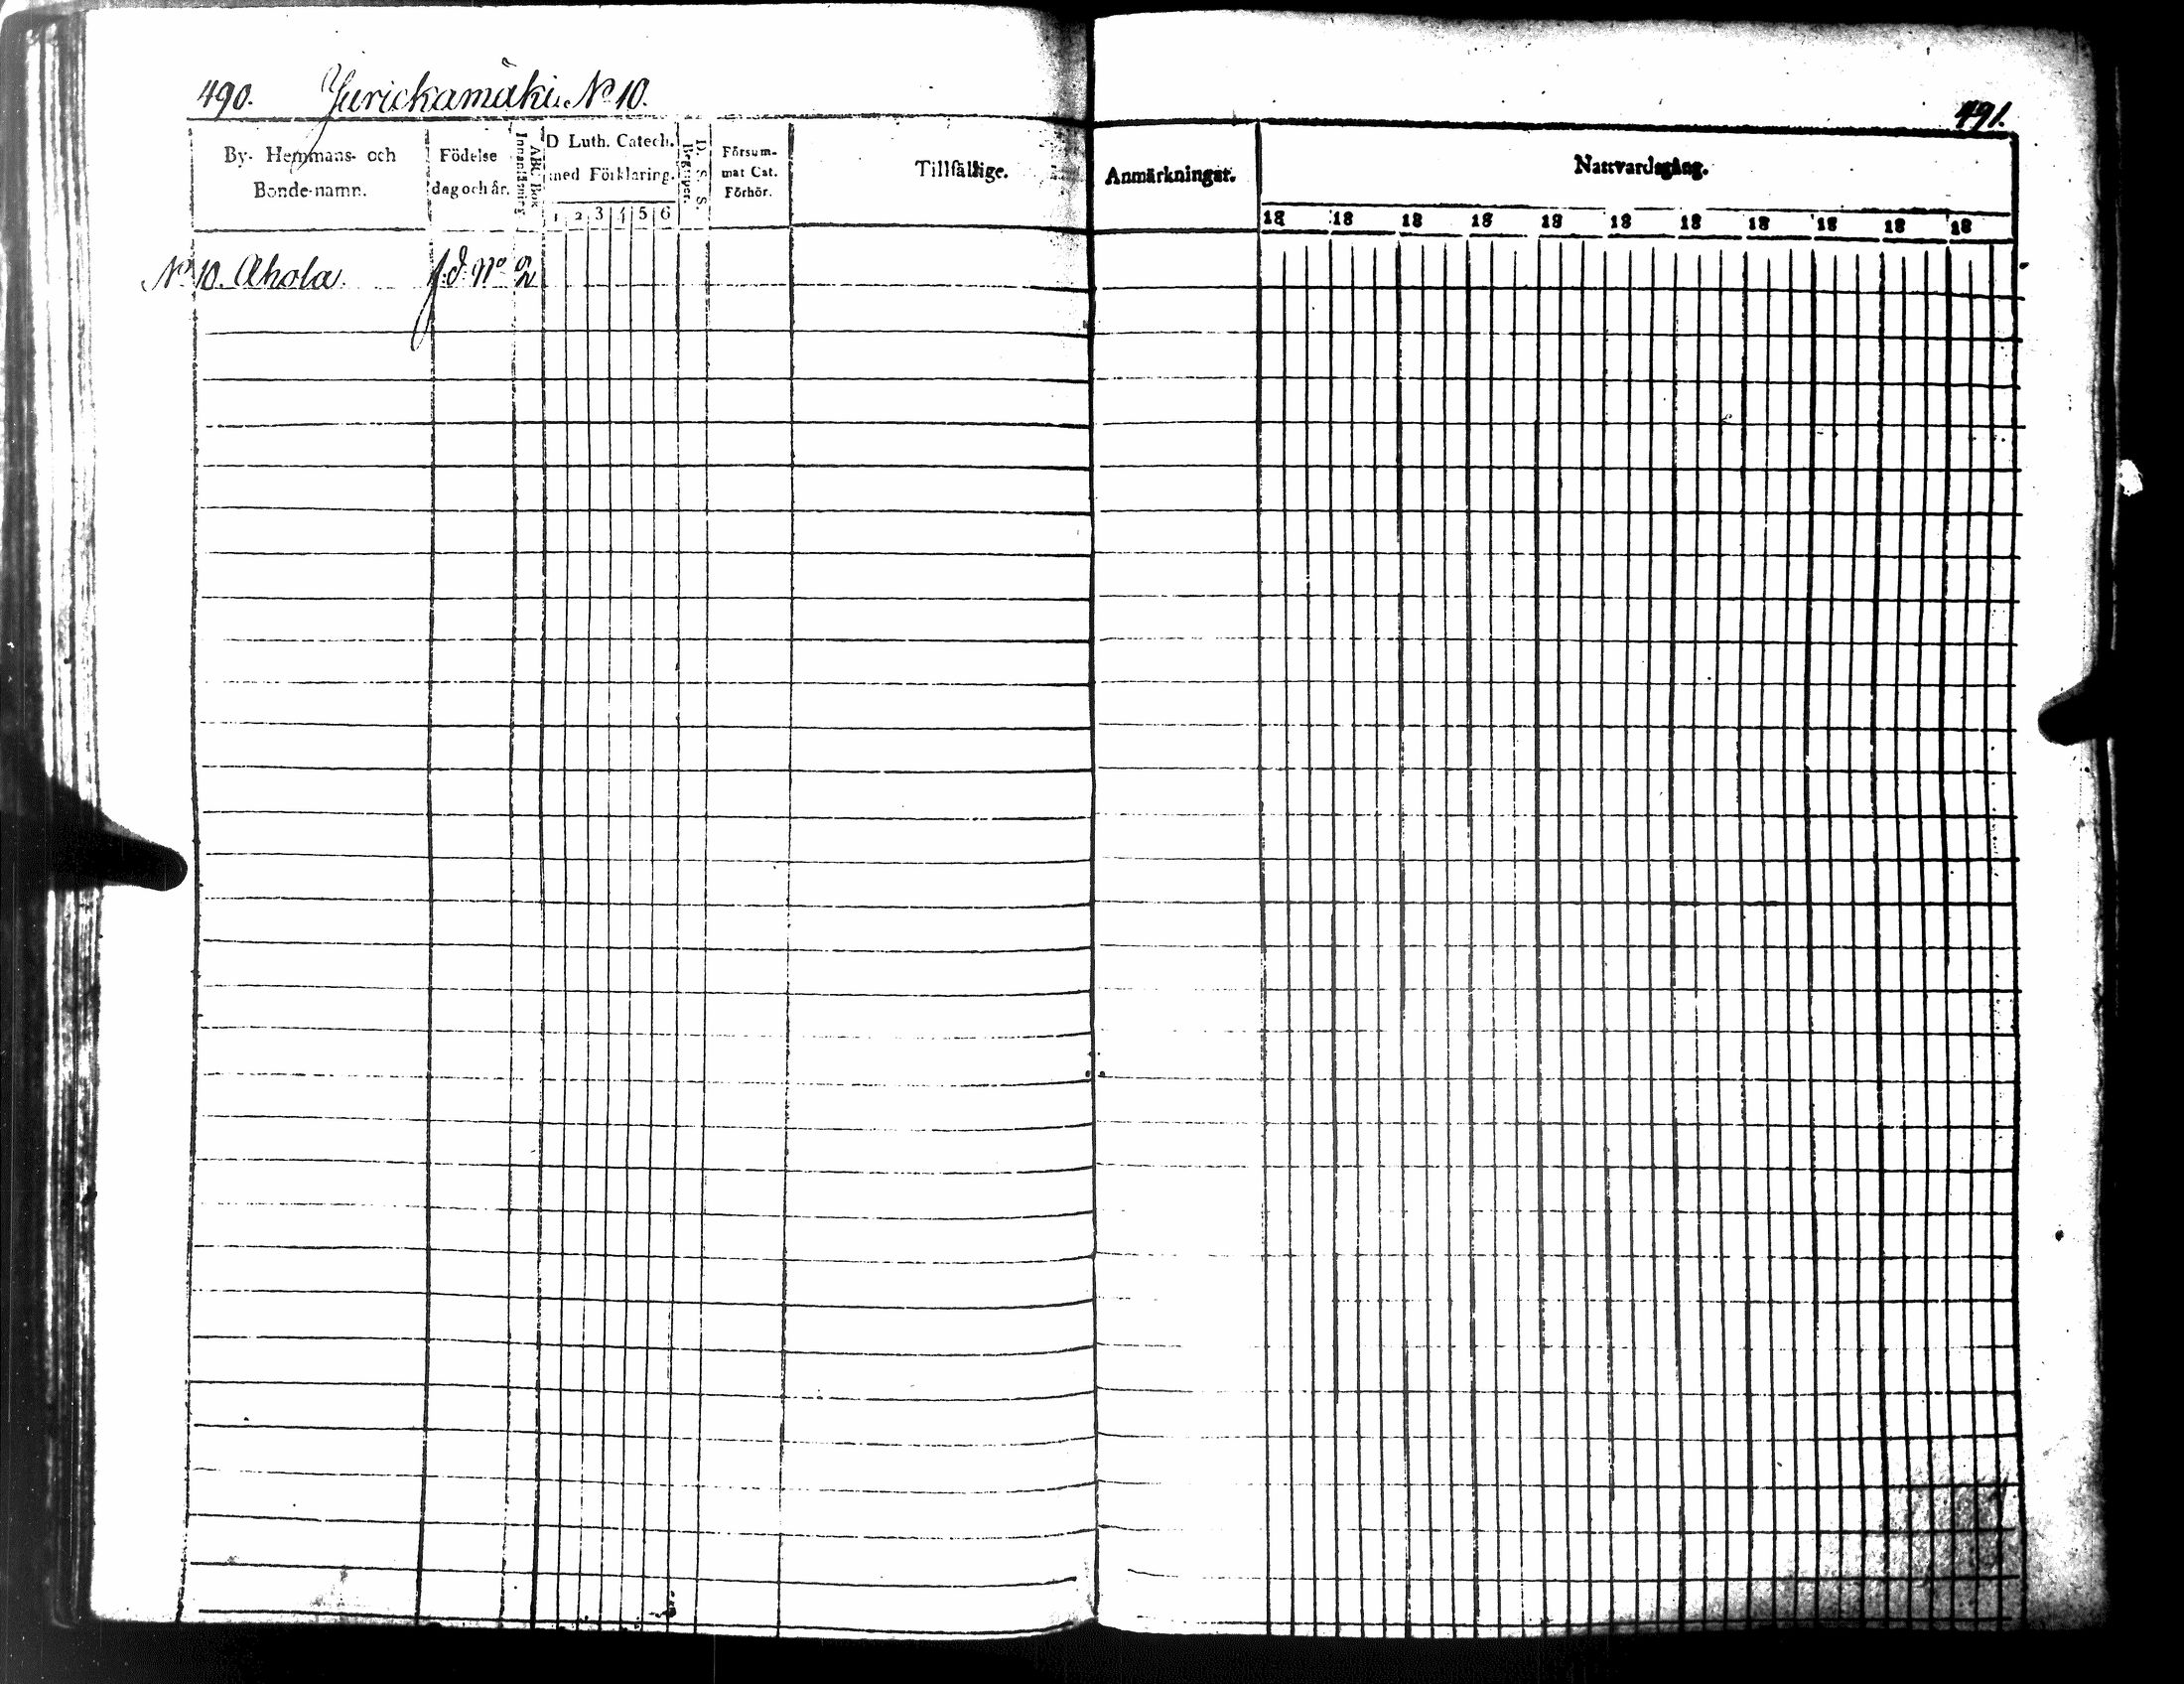 490. Jurickamäki No 10.
491.
By- Hemmans- och Bonde-namn.
Födelse dag och år.
Innanläsning
ABC Bok
D Luth. Catech. med Förklaring.
1 2 3 4 5 6
D. S. S. Begriper.
Försum-mat Cat. Förhör.
Tillfällige.
Anmärkningar.
Nattvardsgång.
18 18 18 18 18 18 18 18 18 18 18
No 10. Ahola.